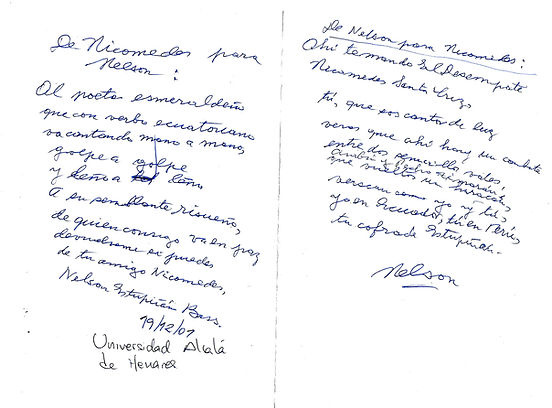 De Nicomedes para
Nelson:
Al poeta esmeraldeño
que con verbo ecuatoriano
va cantando mano a mano,
golpe a golpe
y leño a leño
A su semblante risueño,
de quien consigo va en paz
de tu amigo Nicomedes,
Nelson Estupiñán Bass.
19/12/01
Universidad Alcalá
de Henares
De Nelson para Nicomedes:
Ahí te mando El Desempate
Nicomedes Santa Cruz
tú, que sos cantor de luz
veras que ahí hay un combate
entre dos
que un huracán
versean como yo y tú,
yo en Ecuador, tú en Perú,
tu cofrade Estupiñán.
Nelson